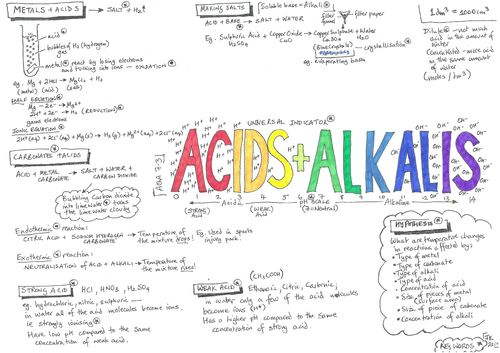 METALS + ACIDS → SALT + H₂↑
acid
bubbles of H₂ (hydrogen) gas
metal react by losing electrons
and turning into ions - OXIDATION
eg. Mg + 2HCl → MgCl₂ + H₂
(metal) (acid) (salt)
HALF EQUATION
Mg - 2e⁻ → Mg²⁺
2H⁺ + 2e⁻ → H₂ (REDUCTION)
gains electrons
IONIC EQUATION
CARBONATES + ACIDS
ACID + METAL CARBONATE → SALT + WATER + CARBON DIOXIDE
Bubbling Carbon dioxide
into limewater turns
the limewater cloudy
Endothermic reaction:
CITRIC ACID + SODIUM HYDROGEN CARBONATE → Temperature of the mixture drops!
Eg. Used in sports injury pack.
Exothermic reaction:
NEUTRALISATION OF ACID + ALKALI → Temperature of the mixture rises!
STRONG ACID HCl, HNO₃, H₂SO₄
eg. hydrochloric, nitric, sulphuric
in water all of the acid molecules become ions,
ie strongly ionising
Have low pH compared to the same
concentration of weak acid.
MAKING SALTS
Soluble base = Alkali
ACID + BASE → SALT + WATER
Eg. Sulphuric Acid + Copper Oxide → Copper Sulphate + Water
H₂SO₄ CuO CuSO₄ H₂O
filter funnel
filter paper
(Blue crystals)
crystallisation
eg. evaporating basin
1dm³ = 1000cm³
Dilute - not much
acid in the amount of
water
Concentrated - more acid
in the same amount
of water
(moles/dm³)
UNIVERSAL INDICATOR
ACIDS + ALKALIS
0 1 2 3 4 5 6 7 8 9 10 11 12 13 14
(STRONG) Acid
Acidic
(WEAK) Acid
pH SCALE
(7 = Neutral)
Alkaline
WEAK ACID (CH₃COOH)
Ethanoic, Citric, Carbonic;
in water only a few of the acid molecules
become ions (H⁺)
Has a higher pH compared to the same
concentration of strong acid.
HYPOTHESIS
What are temperature changes
in reactions affected by;
• Type of metal
• Type of carbonate
• Type of alkali
• Type of acid
• Concentration of acid
• Size of pieces of metal
(surface area)
• Size of piece of carbonate
• Concentration of alkali
KEY WORDS